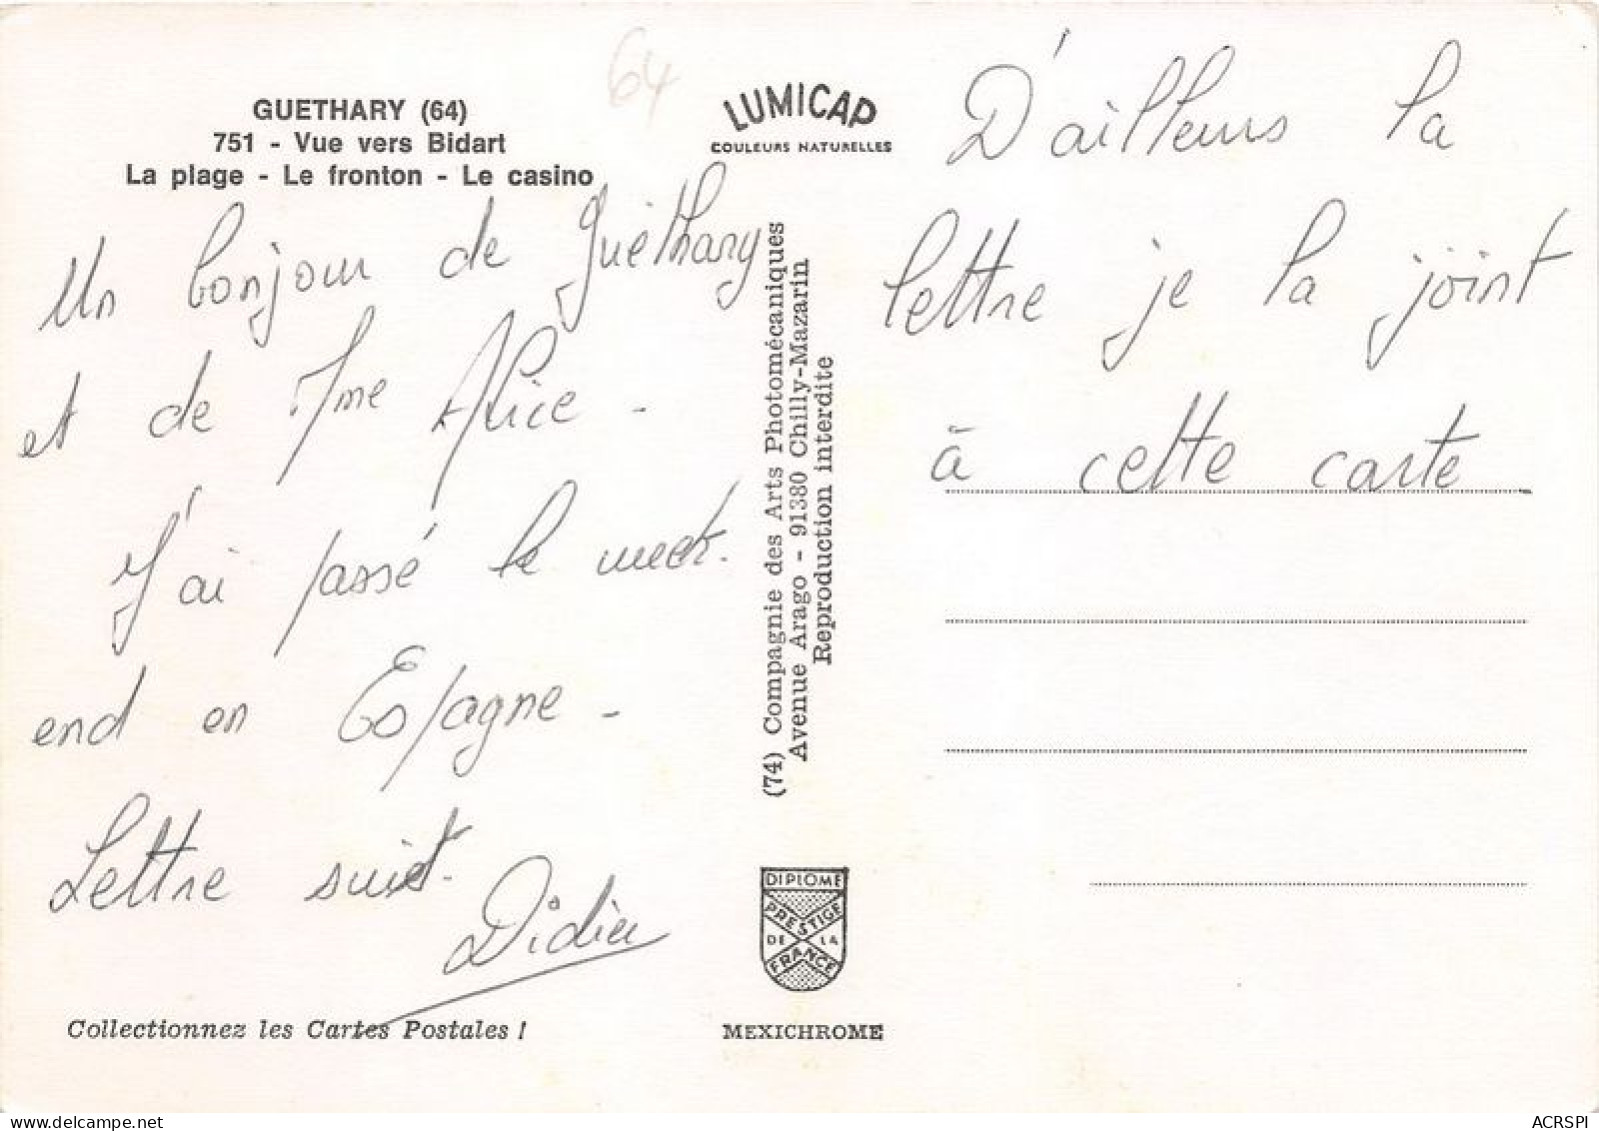 64
GUETHARY (64)
751 - Vue vers Bidart
La plage - Le fronton - Le casino
Un bonjour de Guéthary
et de Mme Alice -
J'ai passé le week.
end en Espagne -
Lettre suit.
Didier
Collectionnez les Cartes Postales !
LUMICAP
COULEURS NATURELLES
(74) Compagnie des Arts Photomécaniques
Avenue Arago - 91380 Chilly-Mazarin
Reproduction interdite
DIPLOME
PRESTIGE
DE LA
FRANCE
MEXICHROME
D'ailleurs la
lettre je la joint
à cette carte.
ACRSPI